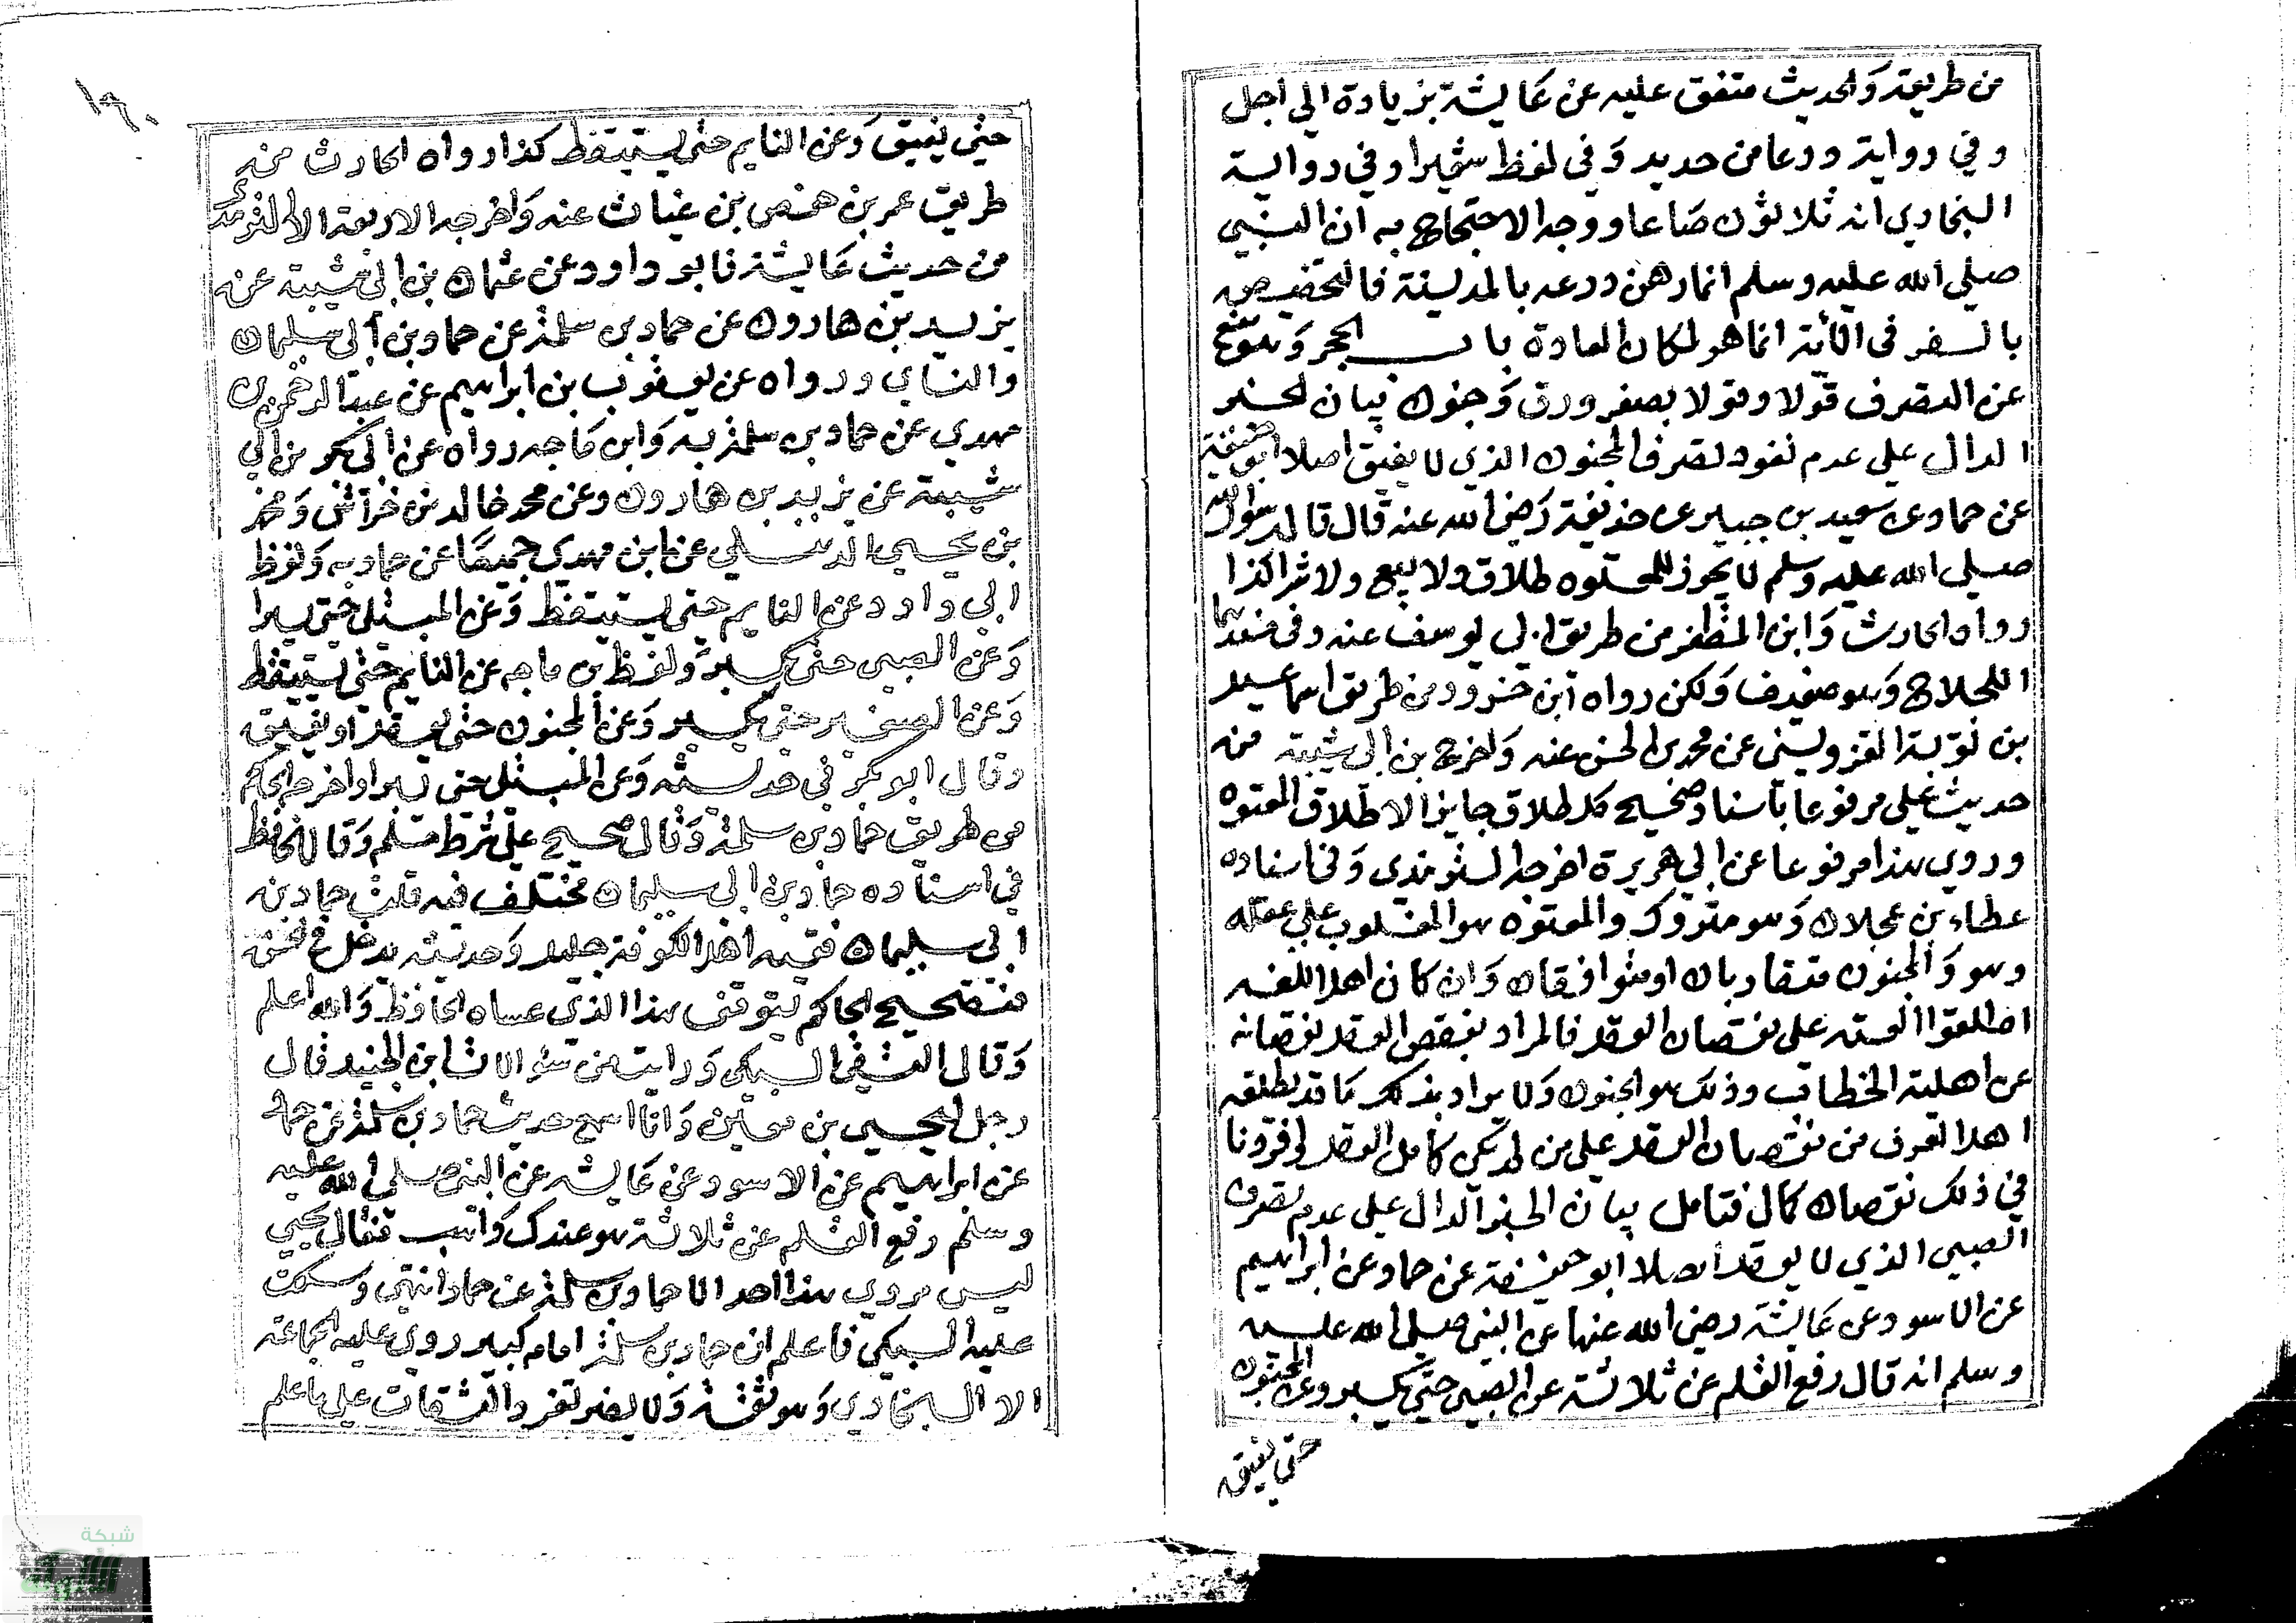 من طريقه والحديث متفق عليه عن عايشة بزيادة الى اجل
وفي رواية درعا من حديد وفي لفظ شعيرا وفي رواية
البخاري انه ثلاثون صاعا ووجه الاحتجاج به ان النبي
صلى الله عليه وسلم انما رهن درعه بالمدينة فالتخصيص
بالسفر في الآية انما هو لمكان العادة باب الحجر وهو منع
عن التصرف قولا وقولا بصغر ورق وجنون بيان الخبر
الدال على عدم نفوذ تصرف المجنون الذي لا يفيق اصلا ابو حنيفة
عن حماد عن سعيد بن جبير عن حذيفة رضي الله عنه قال قال رسول الله
صلى الله عليه وسلم لا يجوز للمعتوه طلاق ولا بيع ولا شرا كذا
رواه الحارث وابن المظفر من طريق ابي يوسف عنه وفي سندهما
اللجلاج وهو ضعيف ولكن رواه ابن خسرو من طريق اسماعيل
بن توبة القزويني عن محمد بن الحسن عنه واخرج بن ابي شيبة من
حديث علي مرفوعا باسناد صحيح كل طلاق جايز الا طلاق المعتوه
وروي هذا مرفوعا عن ابي هريرة اخرجه الترمذي وفي اسناده
عطاء بن عجلان وهو متروك والمعتوه هو المغلوب على عقله
وهو والمجنون متقاربان او متوافقان وان كان اهل اللغة
اطلقوا العته على نقصان العقل فالمراد بنقص العقل نقصانه
عن اهلية الخطاب وذلك هو الجنون ولا يراد بذلك ما قد يطلقه
اهل العرف من نقصان العقل على من لم يكن كامل العقل
في ذلك نقصان كمال فتامل بيان الخبر الدال على عدم تصرف
الصبي الذي لا يعقل اصلا ابو حنيفة عن حماد عن ابراهيم
عن الاسود عن عايشة رضي الله عنها عن النبي صلى الله عليه
وسلم انه قال رفع القلم عن ثلاثة عن الصبي حتى يكبر وعن المجنون
حتى يفيق
١٩٠
حتى يفيق وعن النايم حتى يستيقظ كذا رواه الحارث من
طريق عمر بن حفص بن غياث عنه واخرجه الاربعة الا الترمذي
من حديث عايشة فابو داود عن عثمان بن ابي شيبة عن
يزيد بن هارون عن حماد بن سلمة عن حماد بن ابي سليمان
والنساي ورواه عن يعقوب بن ابراهيم عن عبد الرحمن بن
مهدي عن حماد بن سلمة به وابن ماجه رواه عن ابي بكر بن ابي
شيبة عن يزيد بن هارون وعن محمد خالد بن خراش ومحمد
بن يحيى الذهلي عن ابن مهدي جميعا عن حماد به ولفظ
ابي داود عن النايم حتى يستيقظ وعن المبتلى حتى يبرا
وعن الصبي حتى يكبر ولفظ بن ماجه عن النايم حتى يستيقظ
وعن الصغير حتى يكبر وعن المجنون حتى يعقل او يفيق
وقال ابو بكر في حديثه وعن المبتلى حتى يبرا واخرجه الحاكم
من طريق حماد بن سلمة وقال صحيح على شرط مسلم وقال الحافظ
في اسناده حماد بن ابي سليمان مختلف فيه قلت حماد بن
ابي سليمان فقيه اهل الكوفة جليل وحديثه يدخل في الحسن
فتصحيح الحاكم يتوقى هذا الذي عساه الحافظ والله اعلم
وقال التقي السبكي ورايت من سؤالات ابن الجنيد قال
رجل ليحيى بن معين وانا اسمع حديث حماد بن سلمة عن حماد
عن ابراهيم عن الاسود عن عايشة عن النبي صلى الله عليه
وسلم رفع القلم عن ثلاثة هو عندك واهب فقال يحيى
ليس يروي هذا احد الا حماد بن سلمة عن حماد انتهى وسكت
عليه السبكي فاعلم ان حماد بن سلمة امام كبير روى عليه الجماعة
الا البخاري وهو ثقة ولا يضر تفرد الثقات على ما علم